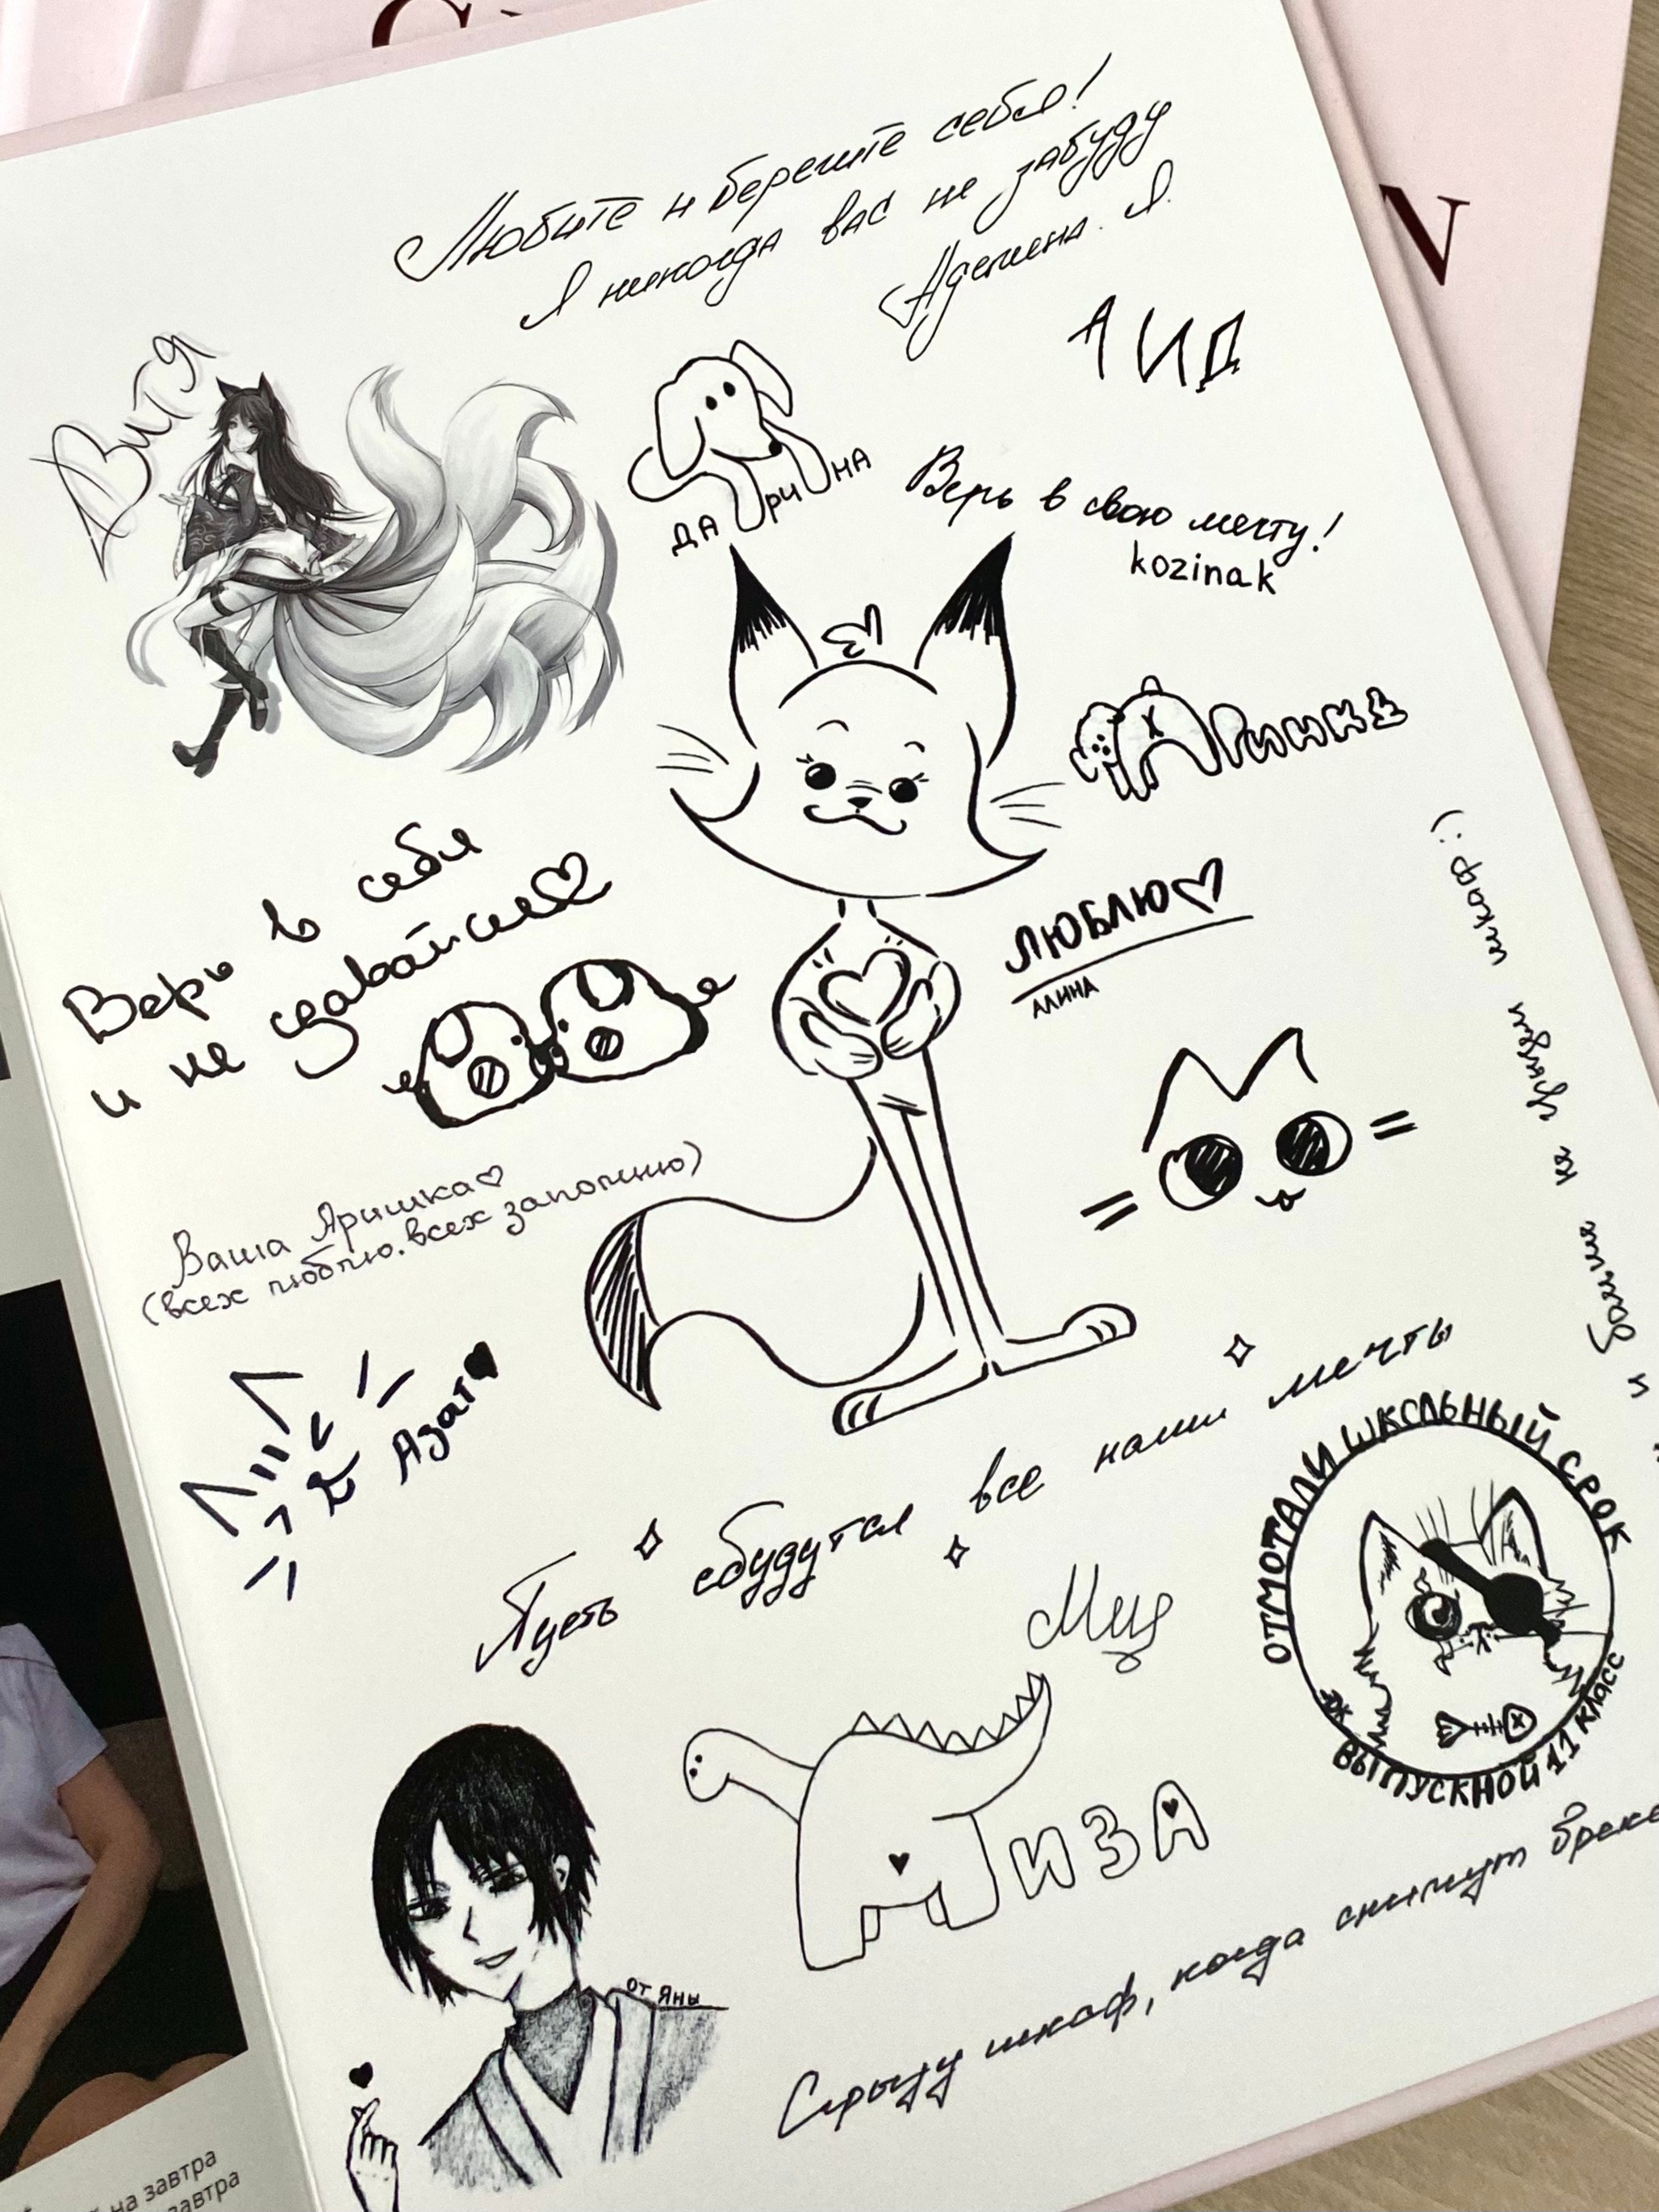 Любите и берегите себя!
Я никогда вас не забуду
Аделина. Я.
АИД
Витя
ДАриНА
Верь в свою мечту!
kozinak
Аринка
Верь в себя
и не сдавайся
ЛЮБЛЮ
АЛИНА
Ваша Яришка
(всех люблю. всех запомню)
Азат
Пусть сбудутся все наши мечты
Миц
ОТМОТАЛИ ШКОЛЬНЫЙ СРОК
ВЫПУСКНОЙ 11 КЛАСС
ЛИЗА
от Яны
Сгрызу шкаф, когда снимут
шкаф:)
на завтра
завтра
N